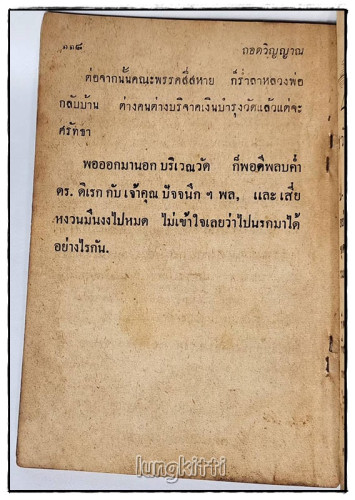 ๑๑๘ ถอดวิญญาณ
ต่อจากนั้นคณะพรรคสี่สหาย ก็ร่ำลาหลวงพ่อ
กลับบ้าน ต่างคนต่างบริจาคเงินบำรุงวัดแล้วแต่จะ
ศรัทธา
พอออกมานอก บริเวณวัด ก็พอดีพลบค่ำ
ดร. ดิเรก กับ เจ้าคุณ ปัจจนึก ฯ พล, และ เสี่ย
หงวนมึนงงไปหมด ไม่เข้าใจเลยว่าไปนรกมาได้
อย่างไรกัน.
lungkitti